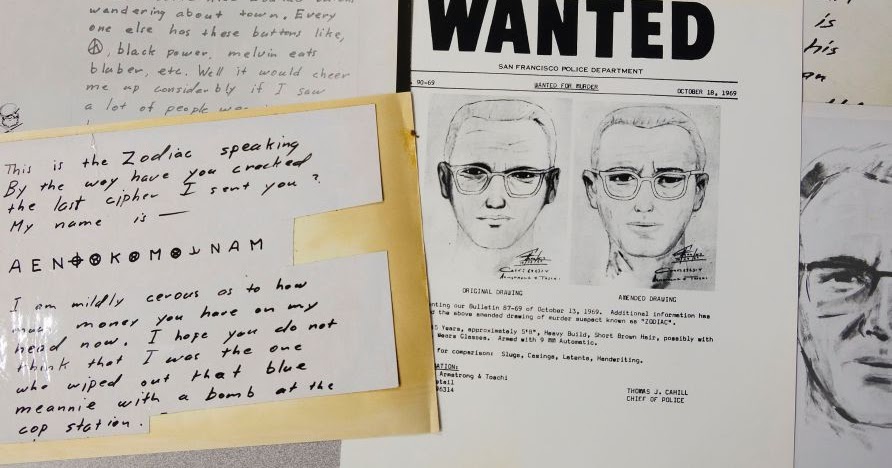 wandering about town. Every
one else has these buttons like,
, black power, melvin eats
bluber, etc. Well it would cheer
me up considerbly if I saw
a lot of people
This is the Zodiac speaking
By the way have you cracked
the last cipher I sent you?
My name is —
A E N ⌖ ⊗ K ⊗ M ⊗ ⅃ N A M
I am mildly cerous as to how
much money you have on my
head now. I hope you do not
think that I was the one
who wiped out that blue
meannie with a bomb at the
cop station.
WANTED
SAN FRANCISCO POLICE DEPARTMENT
90-69 WANTED FOR MURDER OCTOBER 18, 1969
ORIGINAL DRAWING AMENDED DRAWING
nting our Bulletin 87-69 of October 13, 1969. Additional information has
d the above amended drawing of murder suspect known as "ZODIAC".
5 Years, approximately 5'8", Heavy Build, Short Brown Hair, possibly with
Wears Glasses. Armed with 9 MM Automatic.
for comparison: Slugs, Casings, Latents, Handwriting.
ATION:
Armstrong & Toschi
tail
96314
THOMAS J. CAHILL
CHIEF OF POLICE
is
his